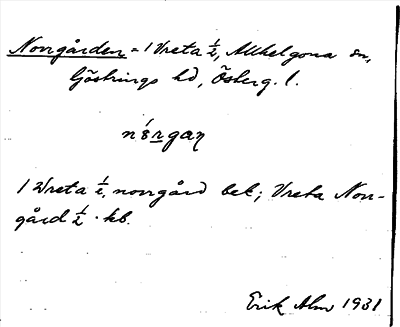 Norrgården = 1 Vreta ½, Allhelgona sn,
Göstrings hd, Österg. l.
nȯ́rgaɳ
1 Vreta ½, norrgård bet; Vreta Norr-
gård ½ · kb.
Erik Alm 1931